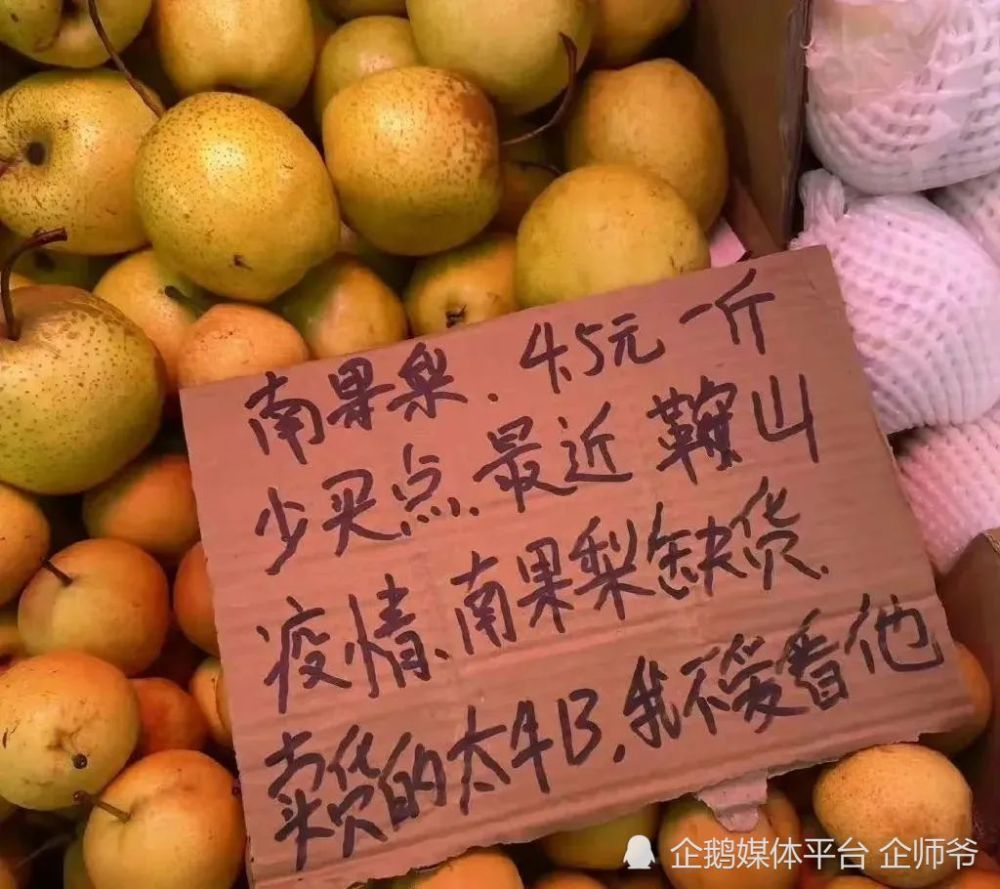 南果梨.4.5元一斤
少买点.最近鞍山
疫情、南果梨缺货.
卖货的太牛B,我不爱看他
企鹅媒体平台 企师爷